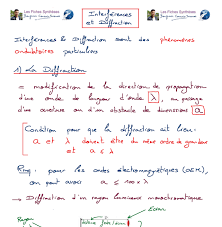 Les Fiches Synthèses
Interférences
et Diffraction
Les Fiches Synthèses
Interférences & Diffraction sont des phénomènes
ondulatoires particuliers
1) La Diffraction
= modification de la direction de propagation
d'une onde de longueur d'onde λ, au passage
d'une ouverture ou d'un obstacle de dimension a
Condition pour que la diffraction ait lieu :
a et λ doivent être du même ordre de grandeur
et a ≤ λ
Rmq : pour les ondes électromagnétiques (OEM),
on peut avoir a ≤ 100 × λ
→ Diffraction d'un rayon lumineux monochromatique
Rayon
Écran